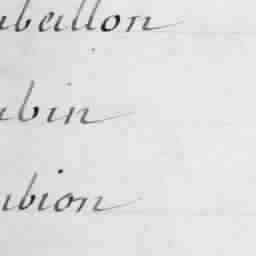 abeillon
ubin
ubion